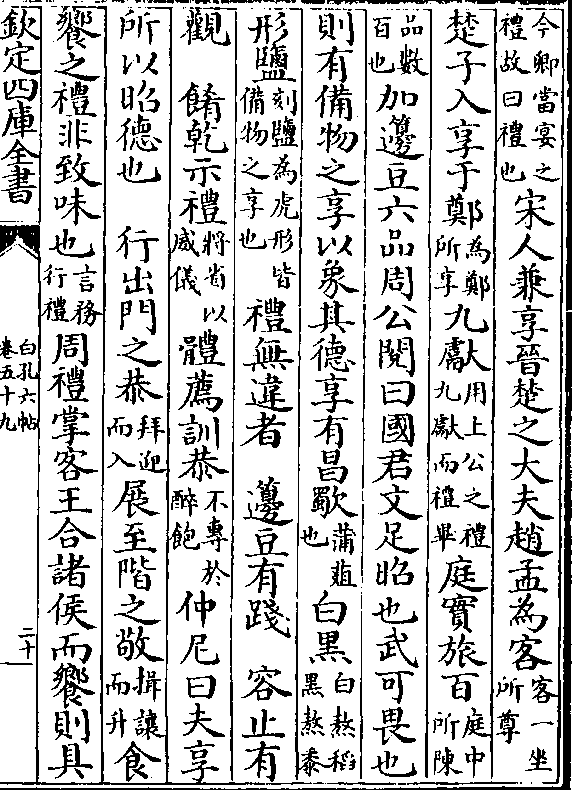 今卿當宴之禮故曰禮也宋人兼享晉楚之大夫趙孟為客客一坐所尊
楚子入享于鄭為鄭所享九獻用上公之禮九獻而禮畢庭實旅百庭中所陳
品數百也加籩豆六品周公閱曰國君文足昭也武可畏也
則有備物之享以象其德享有昌歜蒲葅也白黒白熬稻黒熬黍
形鹽刻鹽為虎形皆備物之享也禮無違者 籩豆有踐 容止有
觀 餚乾示禮將省以威儀體薦訓恭不專於醉飽仲尼曰夫享
所以昭德也 行出門之恭拜迎而入展至階之敬揖讓而升食
饗之禮非致味也言務行禮周禮掌客王合諸侯而饗則具
欽定四庫全書
白孔六帖
卷五十九
二十